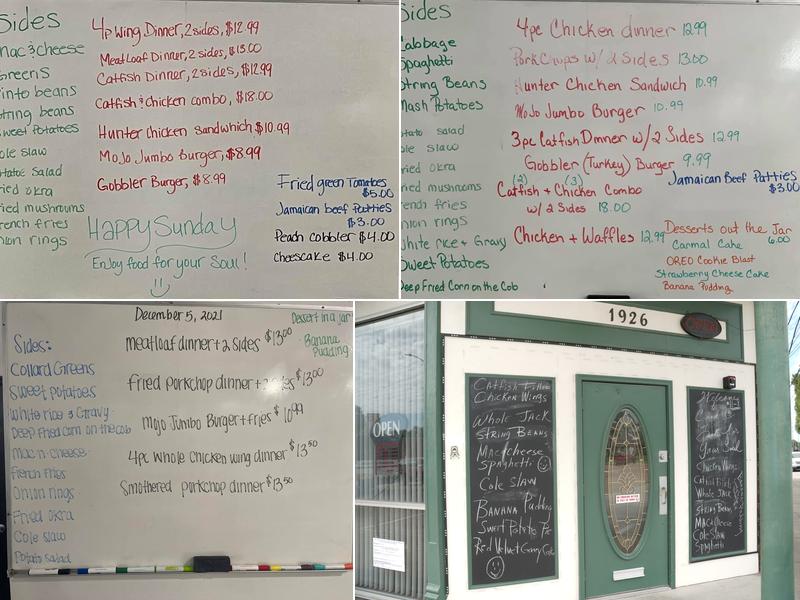 Sides
mac & cheese
Greens
Pinto beans
String beans
Sweet Potatoes
Cole slaw
Potato Salad
Fried okra
Fried mushrooms
French fries
Onion rings
4p Wing Dinner, 2 sides, $12.99
Meat Loaf Dinner, 2 sides, $13.00
Catfish Dinner, 2 sides, $12.99
Catfish & chicken combo, $18.00
Hunter chicken Sandwhich $10.99
MoJo Jumbo Burger, $8.99
Gobbler Burger, $8.99
Happy Sunday
Enjoy food for your Soul!
Fried green Tomatoes
$5.00
Jamaican beef Patties
$3.00
Peach cobbler $4.00
Cheescake $4.00
Sides
Cabbage
Spaghetti
String Beans
Mash Potatoes
Potato salad
Cole slaw
Fried okra
Fried mushrooms
French fries
Onion rings
White rice & Gravy
Sweet Potatoes
Deep Fried Corn on the Cob
4pc Chicken dinner 12.99
Pork Chops w/ 2 Sides 13.00
Hunter Chicken Sandwich 10.99
MoJo Jumbo Burger 10.99
3pc Catfish Dinner w/ 2 Sides 12.99
Gobbler (Turkey) Burger 9.99
(2) (3)
Catfish + Chicken Combo
w/ 2 Sides 18.00
Chicken + Waffles 12.99
Jamaican Beef Patties
$3.00
Desserts out the Jar
6.00
Carmal Cake
OREO Cookie Blast
Strawberry Cheese Cake
Banana Pudding
December 5, 2021
Sides:
Collard Greens
Sweet potatoes
White rice & Gravy
Deep Fried corn on the cob
Mac n cheese
French fries
Onion rings
Fried okra
Cole slaw
Potato salad
meatloaf dinner + 2 sides $13.00
fried porkchop dinner + 2 sides $13.00
Mojo Jumbo Burger + fries $10.99
4pc whole chicken wing dinner $13.50
Smothered porkchop dinner $13.50
Dessert in a jar
- Banana
Pudding
1926
OPEN
OPEN
Catfish Fillets
Chicken Wings
Whole Jack
String Beans
Mac & cheese
Spaghetti
Cole Slaw
Banana Pudding
Sweet Potato Pie
Red Velvet Gooey Cake
Chicken Wings
Catfish Fillets
Whole Jack
String Beans
Mac & Cheese
Cole Slaw
Spaghetti